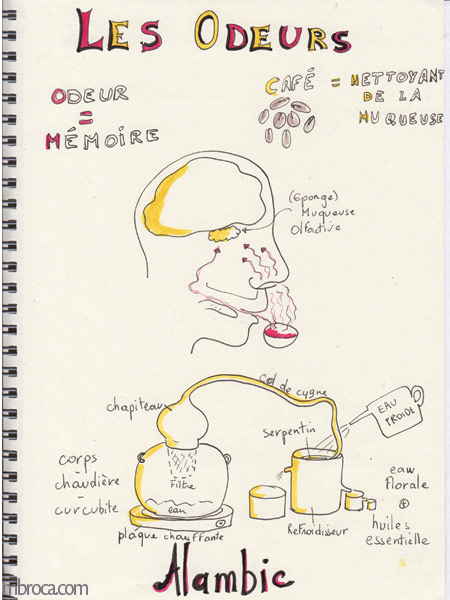 LES ODEURS
ODEUR
=
MÉMOIRE
CAFÉ = NETTOYANT
DE LA
MUQUEUSE
(Eponge)
Muqueuse
Olfactive
col de cygne
chapiteau
EAU
FROIDE
serpentin
corps
-
chaudière
-
curcubite
Filtre
eau
eau
florale
+
huiles
essentielle
plaque chauffante
Refroidisseur
Alambic
nbroca.com